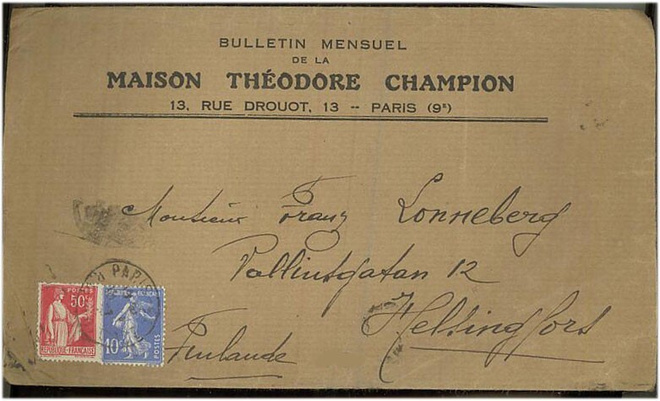 BULLETIN MENSUEL
DE LA
MAISON THÉODORE CHAMPION
13, RUE DROUOT, 13 -- PARIS (9ᵉ)
Monsieur Franz Lonneberg
12
Helsingfors
Finlande
PARIS
POSTES
50ᶜ
RÉPUBLIQUE-FRANÇAISE
10ᶜ
POSTES